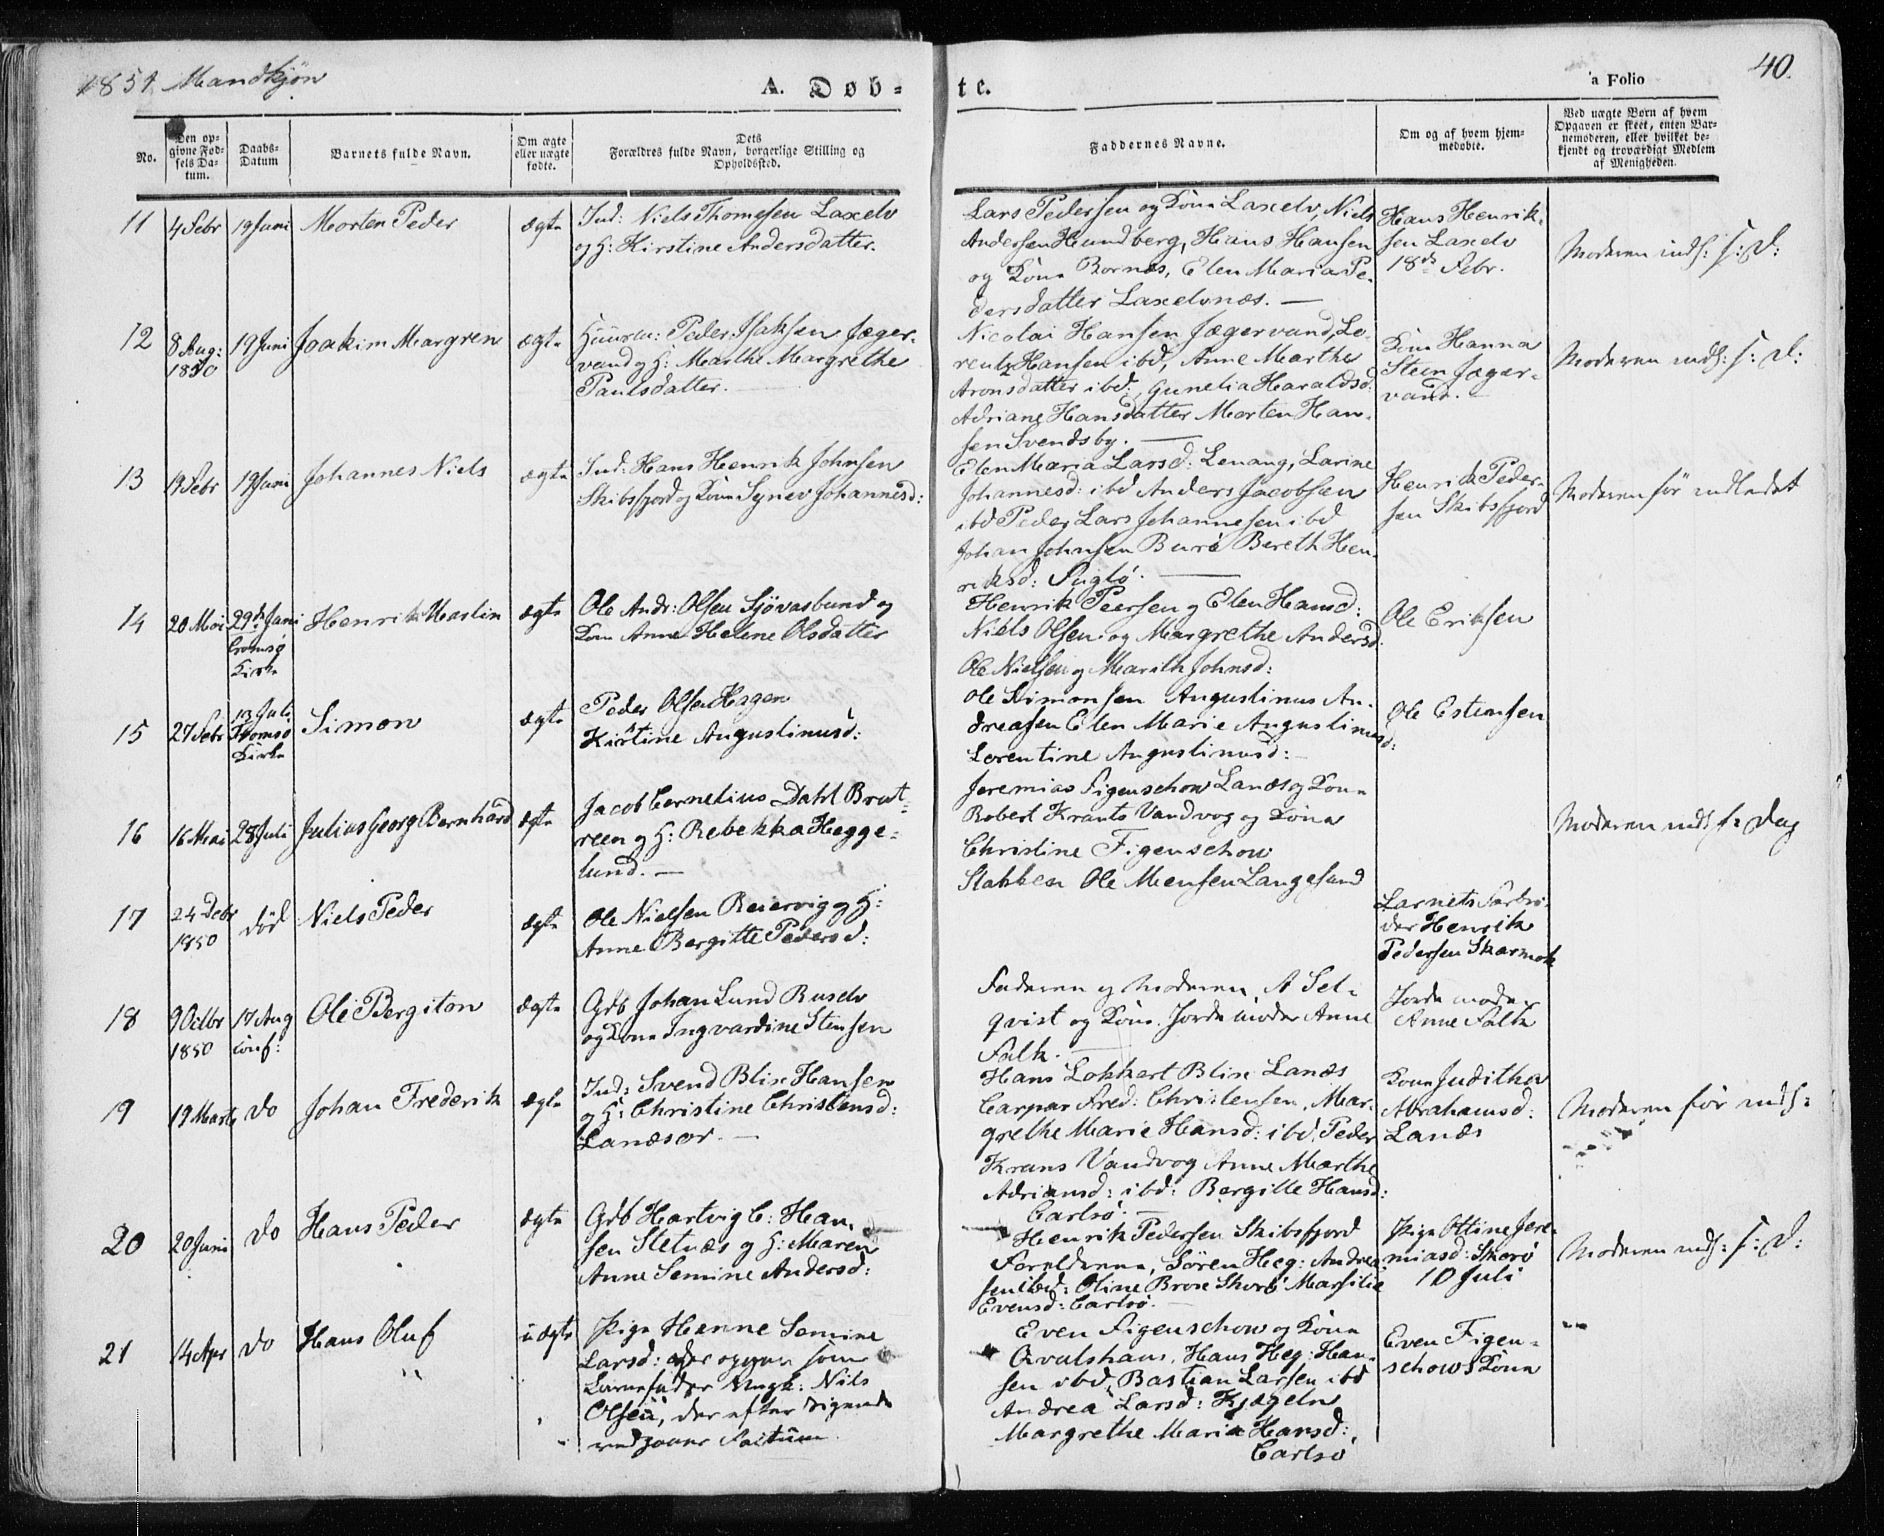 1851. Mandkjøn
A. Døb-
te.
'a Folio
40.
No.
Den op-
givne Fød-
sels Da-
tum.
Daabs-
Datum
Barnets fulde Navn.
Om ægte
eller uægte
fødte.
Dets
Forældres fulde Navn, borgerlige Stilling og
Opholdssted.
Faddernes Navne.
Om og af hvem hjem-
medøbte.
Ved uægte Børn af hvem
Opgaven er skeet, enten Bar-
nemoderen, eller hvilket be-
kjendt og troværdigt Medlem
af Menigheden.
11
4 Febr
19 Juni
Morten Peder
ægte
Ind: Niels Thomesen Laxelv
og H: Kirstine Andersdatter.
Lars Pedersen og Kone Laxelv, Niels
Andersen Hundberg, Hans Hansen
og Kone Bornæs, Elen Maria Pe-
dersdatter Laxelvnæs. —
Hans Henrik-
sen Laxelv
18de Febr.
Moderen inds: s: D:
12
8 Aug:
1850
19 Juni
Joakim Margren
ægte
Huusm: Peder Isaksen Jæger-
vand og H: Marthe Margrethe
Paulsdatter. —
Nicolai Hansen Jægervand, Lo-
rentz Hansen ibd, Anne Marthe
Aronsdatter ibd: Gunelia Haraldsd:
Adriane Hansdatter Morten Han-
sen Svendsby. —
Kone Hanna
Steen Jæger-
vand. —
Moderen inds: s: D:
13
19 Febr
19 Juni
Johannes Niels
ægte
Ind: Hans Henrik Johnsen
Skibsfjord og Kone Synev Johannesd:
Elen Maria Larsd: Lenang, Larine
Johannesd: ibd Anders Jacobsen
ibd Peder Lars Johannesen ibd
Johan Johnsen Burö Bereth Hen-
riksd: Fuglö. —
Henrik Peder-
sen Skibsfjord
Moderen för indledet
14
20 Mai
29de Juni
Tromsø
Kirke
Henrik Marlin
ægte
Ole Andr: Olsen Sjövasbund og
Kone Anne Helene Olsdatter
Henrik Peersen og Elen Hansd:
Niels Olsen og Margrethe Andersd:
Ole Nielsen og Marith Johnsd:
Ole Eriksen
15
27 Febr
13 Juli
Tromsø
Kirke
Simon
ægte
Peder Olsen Hagen
Kirstine Augustinusd:
Ole Simonsen Augustinus An-
dreasen Elen Marie Augustinusd:
Lorentine Augustinusd: —
Ole Estensen
16
16 Mai
28 Juli
Julius Georg Bernhard
ægte
Jacob Cornelius Dahl Brat-
reen og H: Rebekka Hegge-
lund. —
Jeremias Figenschow Lanæs og Kone
Robert Krantz Vandvog og Kone
Christine Figenschow
Stabben Ole Mensen Langesund
Moderen inds s: Dag
17
24 Debr
1850
död
Niels Peder
ægte
Ole Nielsen Reiervig og H:
Anne Bergitte Pedersd:
Barnets Farbro-
der Henrik
Pedersen Skarmok
18
9 Octbr
1850
17 Aug
conf:
Ole Bergiton
ægte
Grb Johan Lund Ruselv
og Kone Ingvardine Stensen
Faderen og Moderen, A Sel-
qvist og Kone. Jordemoder Anne
Falk. —
Jordemoder
Anne Falk
19
19 Marts
do
Johan Frederik
ægte
Ind: Svend Blix Hansen
og H: Christine Christensd:
Lanæsør. —
Hans Lokkert Blix Lanæs
Carpar Fred: Christensen, Mar-
grethe Marie Hansd: ibd. Peder
Krans Vandvog Anne Marthe
Adriansd: ibd: Bergitte Hansd:
Carlsö. —
Kone Juditha
Abrahamsd:
Lanæs
Moderen för inds:
20
20 Juni
do
Hans Peder
ægte
Grb Hartvig C: Han-
sen Sletnæs og H: Maren
Anne Semine Andersd:
Henrik Pedersen Skibsfjord
Forældrene, Sören Heg: Andrea-
sen ibd: Oline Brox Skorö Marsilie
Evensd: Carlsö. —
Pige Ottine Jere-
miasd: Skorö
10 Juli
Moderen inds: s: D:
21
14 Apr
do
Hans Oluf
uægte
Pige Hanne Semine
Larsd: der opgav som
Barnefader Ungk: Nils
Olsen, der efter Sigende
vedgaaer Factum.
Even Figenschow og Kone
Qvalshaus, Hans Heg: Han-
sen ibd, Bastian Larsen ibd
Andrea Larsd: Kjægeln
Margrethe Maria Hansd:
Carlsö
Even Figen-
schows Kone